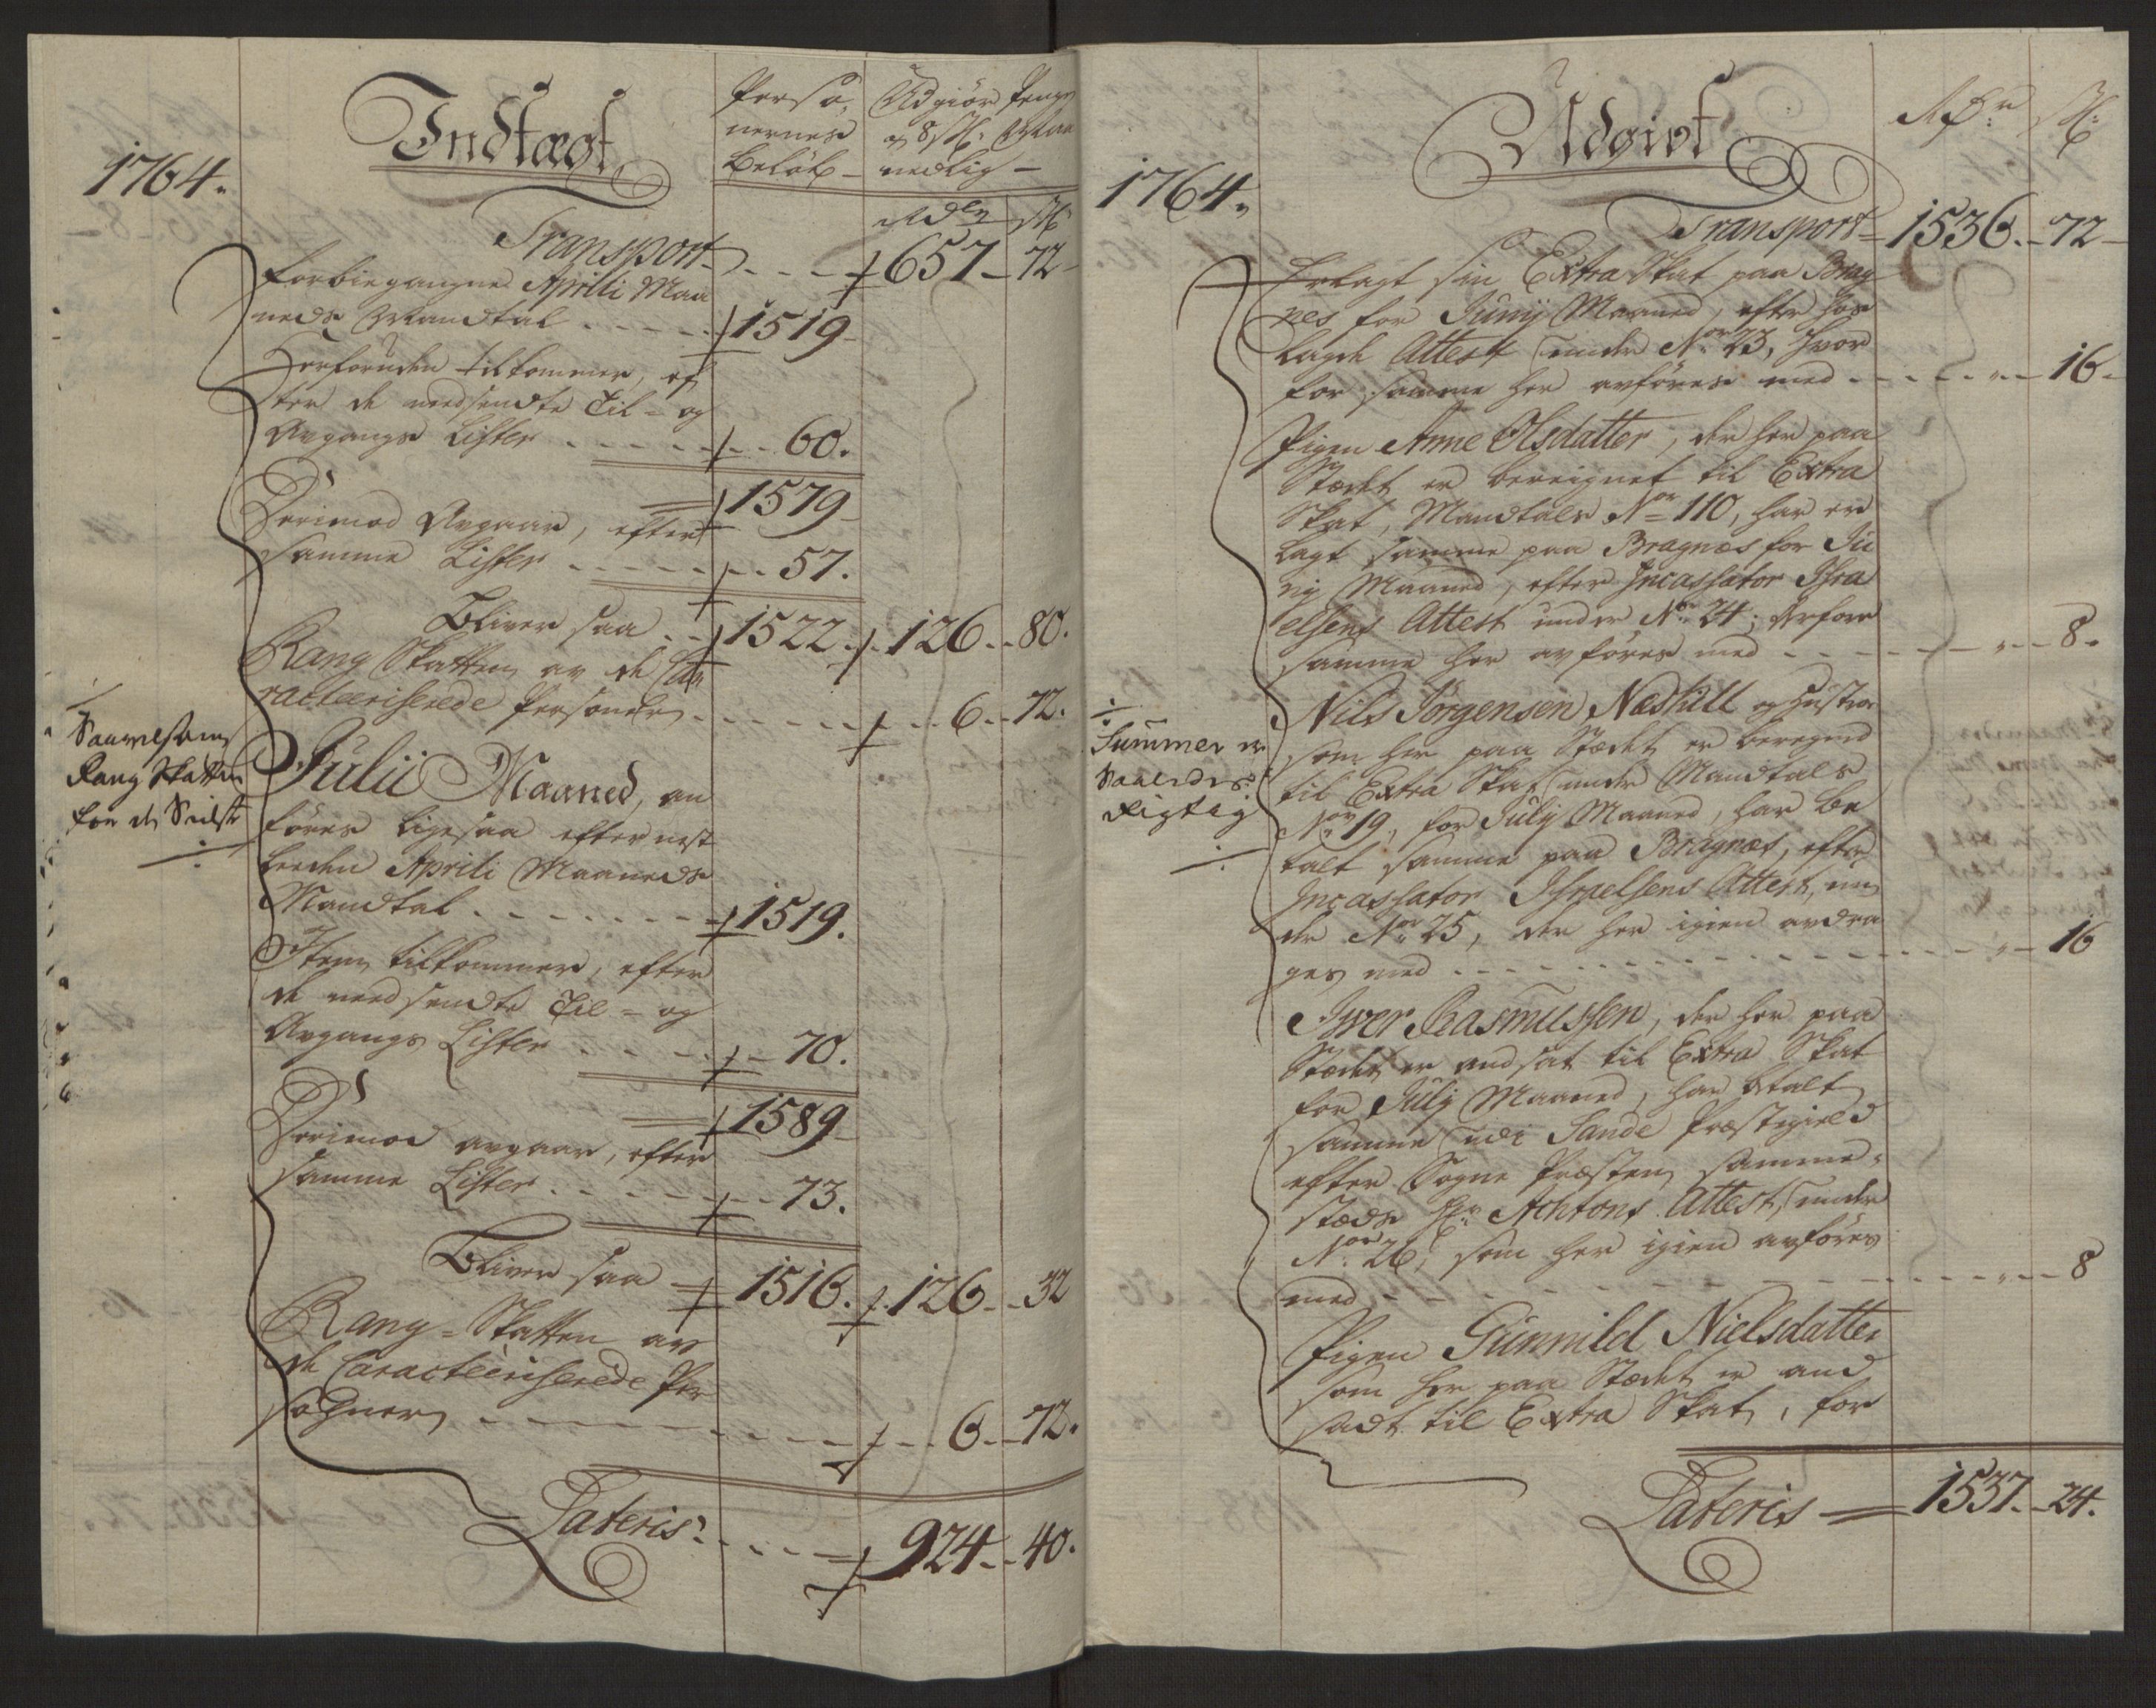 Indtægt
1764.
Perso,
nernes
Beløb
Udgiør Penge
a 8 s. Maa
nedlig
Rdlr s.
Transport 657 - 72
forbiegangne Aprilii Maa
neds Mandtal 1519
Herforuden tilkommer, ef
ter de medsendte Til- og
Avgangs Lister 60.
1579
Derimod Avgaar, efter
samme Lister 57.
Bliver saa 1522. 126. 80.
Rang Skatten av de Ca
racteeriserede Personer 6. 72.
Rang Skatten
Julii Maaned, an
føres ligesaa efter nest
Aprili Maaneds
Mandtal 1519.
Item tilkommer, efter
de medsendte Til- og
Avgangs Lister 70.
1589
Derimod avgaar, efter
samme Lister 73.
Bliver saa 1516. 126. 32
Rang-Skatten av
de Caracteeriserede Per
sohner 6. 72.
Lateris 924. 40.
Udgivt
1764.
Rdr s.
Transport 1536. 72
Erlagt sin Extra Skat paa Brag
nes for Junij Maaned, efter hos
lagde Attest under Nor 23, hvor
for samme her avføres med 16.
Pigen Anne Olsdatter, der her paa
Stædet er bereignet til Extra
Skat, Mandtals Nor 110, har er
lagt samme paa Bragnæs for Ju
nij Maaned, efter Incassator Isra
elsens Attest under Nor 24; derfore
samme her avføres med 8.
Summer er
Saaledes
Rigtig
Nils Jørgensen Næskill og Hustroe
som her paa Stædet er beregned
til Extra Skat under Mandtals
Nor 19, for Julij Maaned, har be
talt samme paa Bragnæs, efter
Incassator Israelsens Attest, un
der Nor 25, der her igien avdra
ges med 16
Iver Rasmussen, der her paa
Stædet er andsat til Extra Skat
for Julij Maaned, har betalt
samme udi Sande Præstegield
efter Sogne Præsten samme-
stæds Hr. Achtons Attest, under
Nor 26, som her igien avføres
med 8
Pigen Gunnild Nielsdatter
som her paa Stædet er and
sadt til Extra Skat, for
Lateris 1537. 24.